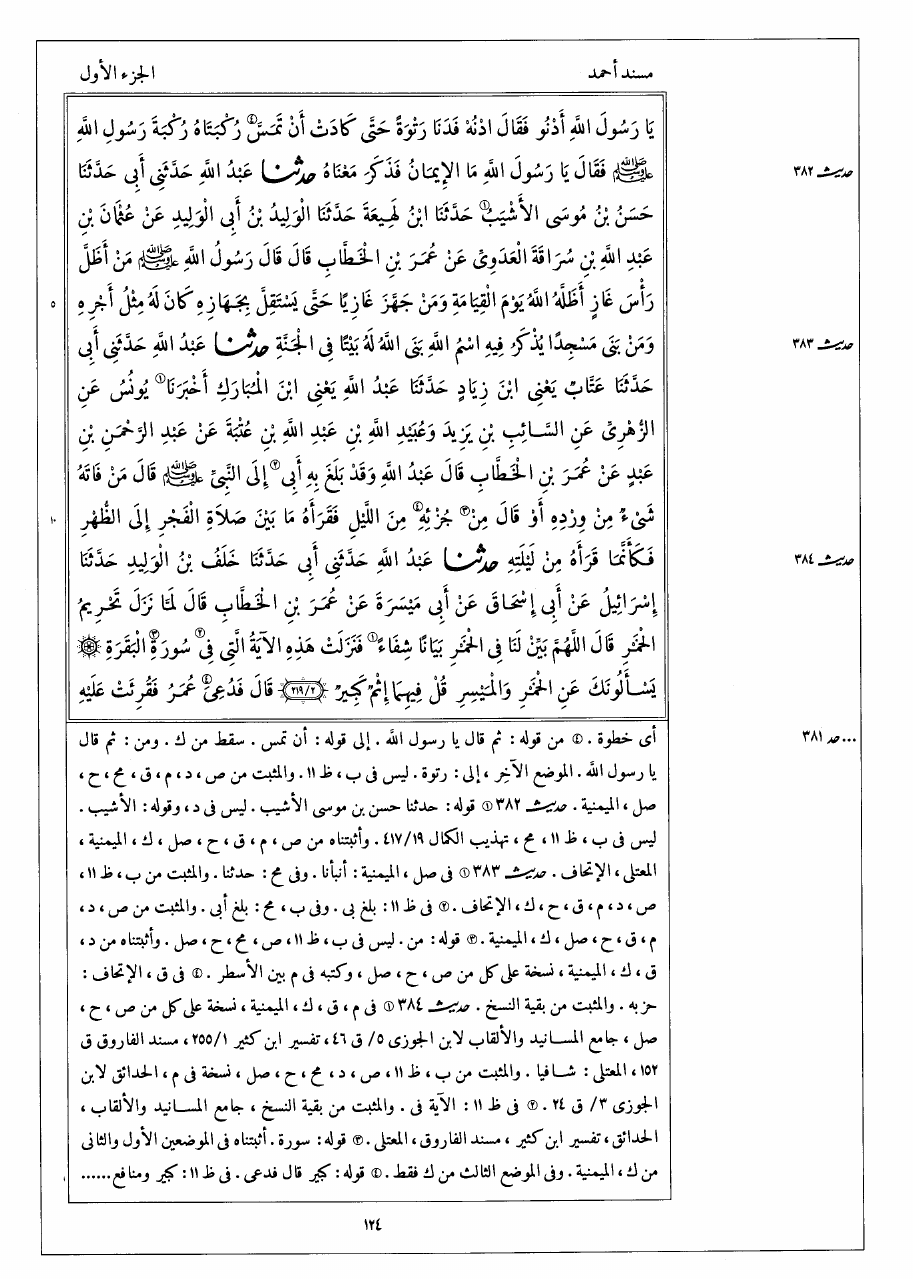 مسند أحمد الجزء الأول
يَا رَسُولَ اللَّهِ أَدْنُو فَقَالَ ادْنُهْ فَدَنَا رَتْوَةً حَتَّى كَادَتْ أَنْ تَمَسَّ④ رُكْبَتَاهُ رُكْبَةَ رَسُولِ اللَّهِ
ﷺ فَقَالَ يَا رَسُولَ اللَّهِ مَا الإِيمَانُ فَذَكَرَ مَعْنَاهُ حدثنا عَبْدُ اللَّهِ حَدَّثَنِى أَبِى حَدَّثَنَا
حديث ٣٨٢
حَسَنُ بْنُ مُوسَى الأَشْيَبُ① حَدَّثَنَا ابْنُ لَهِيعَةَ حَدَّثَنَا الْوَلِيدُ بْنُ أَبِى الْوَلِيدِ عَنْ عُثْمَانَ بْنِ
عَبْدِ اللَّهِ بْنِ سُرَاقَةَ الْعَدَوِىِّ عَنْ عُمَرَ بْنِ الْخَطَّابِ قَالَ قَالَ رَسُولُ اللَّهِ ﷺ مَنْ أَظَلَّ
رَأْسَ غَازٍ أَظَلَّهُ اللَّهُ يَوْمَ الْقِيَامَةِ وَمَنْ جَهَّزَ غَازِيًا حَتَّى يَسْتَقِلَّ بِجَهَازِهِ كَانَ لَهُ مِثْلُ أَجْرِهِ
٥
وَمَنْ بَنَى مَسْجِدًا يُذْكَرُ فِيهِ اسْمُ اللَّهِ بَنَى اللَّهُ لَهُ بَيْتًا فِى الْجَنَّةِ حدثنا عَبْدُ اللَّهِ حَدَّثَنِى أَبِى
حديث ٣٨٣
حَدَّثَنَا عَتَّابٌ يَعْنِى ابْنَ زِيَادٍ حَدَّثَنَا عَبْدُ اللَّهِ يَعْنِى ابْنَ الْمُبَارَكِ أَخْبَرَنَا① يُونُسُ عَنِ
الزُّهْرِىِّ عَنِ السَّائِبِ بْنِ يَزِيدَ وَعُبَيْدِ اللَّهِ بْنِ عَبْدِ اللَّهِ بْنِ عُتْبَةَ عَنْ عَبْدِ الرَّحْمَنِ بْنِ
عَبْدٍ عَنْ عُمَرَ بْنِ الْخَطَّابِ قَالَ عَبْدُ اللَّهِ وَقَدْ بَلَغَ بِهِ أَبِى② إِلَى النَّبِىِّ ﷺ قَالَ مَنْ فَاتَهُ
شَىْءٌ مِنْ وِرْدِهِ أَوْ قَالَ مِنْ③ جُزْئِهِ④ مِنَ اللَّيْلِ فَقَرَأَهُ مَا بَيْنَ صَلاَةِ الْفَجْرِ إِلَى الظُّهْرِ
١٠
فَكَأَنَّمَا قَرَأَهُ مِنْ لَيْلَتِهِ حدثنا عَبْدُ اللَّهِ حَدَّثَنِى أَبِى حَدَّثَنَا خَلَفُ بْنُ الْوَلِيدِ حَدَّثَنَا
حديث ٣٨٤
إِسْرَائِيلُ عَنْ أَبِى إِسْحَاقَ عَنْ أَبِى مَيْسَرَةَ عَنْ عُمَرَ بْنِ الْخَطَّابِ قَالَ لَمَّا نَزَلَ تَحْرِيمُ
الْخَمْرِ قَالَ اللَّهُمَّ بَيِّنْ لَنَا فِى الْخَمْرِ بَيَانًا شِفَاءً① فَنَزَلَتْ هَذِهِ الآيَةُ الَّتِى فِى② سُورَةِ③ الْبَقَرَةِ
يَسْأَلُونَكَ عَنِ الْخَمْرِ وَالْمَيْسِرِ قُلْ فِيهِمَا إِثْمٌ كَبِيرٌ (٢١٩/٢) قَالَ فَدُعِىَ④ عُمَرُ فَقُرِئَتْ عَلَيْهِ
...حد ٣٨١
أى خطوة . ④ من قوله : ثم قال يا رسول الله . إلى قوله : أن تمس . سقط من ك . ومن : ثم قال
يا رسول الله . الموضع الآخر ، إلى : رتوة . ليس فى ب ، ظ ١١ . والمثبت من ص ، د ، م ، ق ، مح ، ح ،
صل ، الميمنية . حديث ٣٨٢ ① قوله : حدثنا حسن بن موسى الأشيب . ليس فى د ، وقوله : الأشيب .
ليس فى ب ، ظ ١١ ، مح ، تهذيب الكمال ٤١٧/١٩ . وأثبتناه من ص ، م ، ق ، ح ، صل ، ك ، الميمنية ،
المعتلى ، الإتحاف . حديث ٣٨٣ ① فى صل ، الميمنية : أنبأنا . وفى مح : حدثنا . والمثبت من ب ، ظ ١١ ،
ص ، د ، م ، ق ، ح ، ك ، الإتحاف . ② فى ظ ١١ : بلغ بى . وفى ب ، مح : بلغ أبى . والمثبت من ص ، د ،
م ، ق ، ح ، صل ، ك ، الميمنية . ③ قوله : من . ليس فى ب ، ظ ١١ ، ص ، مح ، ح ، صل . وأثبتناه من د ،
ق ، ك ، الميمنية ، نسخة على كل من ص ، ح ، صل ، وكتبه فى م بين الأسطر . ④ فى ق ، الإتحاف :
حزبه . والمثبت من بقية النسخ . حديث ٣٨٤ ① فى م ، ق ، ك ، الميمنية ، نسخة على كل من ص ، ح ،
صل ، جامع المسانيد والألقاب لابن الجوزى ٥/ ق ٤٦ ، تفسير ابن كثير ٢٥٥/١ ، مسند الفاروق ق
١٥٢ ، المعتلى : شافيا . والمثبت من ب ، ظ ١١ ، ص ، د ، مح ، ح ، صل ، نسخة فى م ، الحدائق لابن
الجوزى ٣/ ق ٢٤ . ② فى ظ ١١ : الآية فى . والمثبت من بقية النسخ ، جامع المسانيد والألقاب ،
الحدائق ، تفسير ابن كثير ، مسند الفاروق ، المعتلى . ③ قوله : سورة . أثبتناه فى الموضعين الأول والثانى
من ك ، الميمنية . وفى الموضع الثالث من ك فقط . ④ قوله : كبير قال فدعى . فى ظ ١١ : كبير ومنافع......
١٢٤